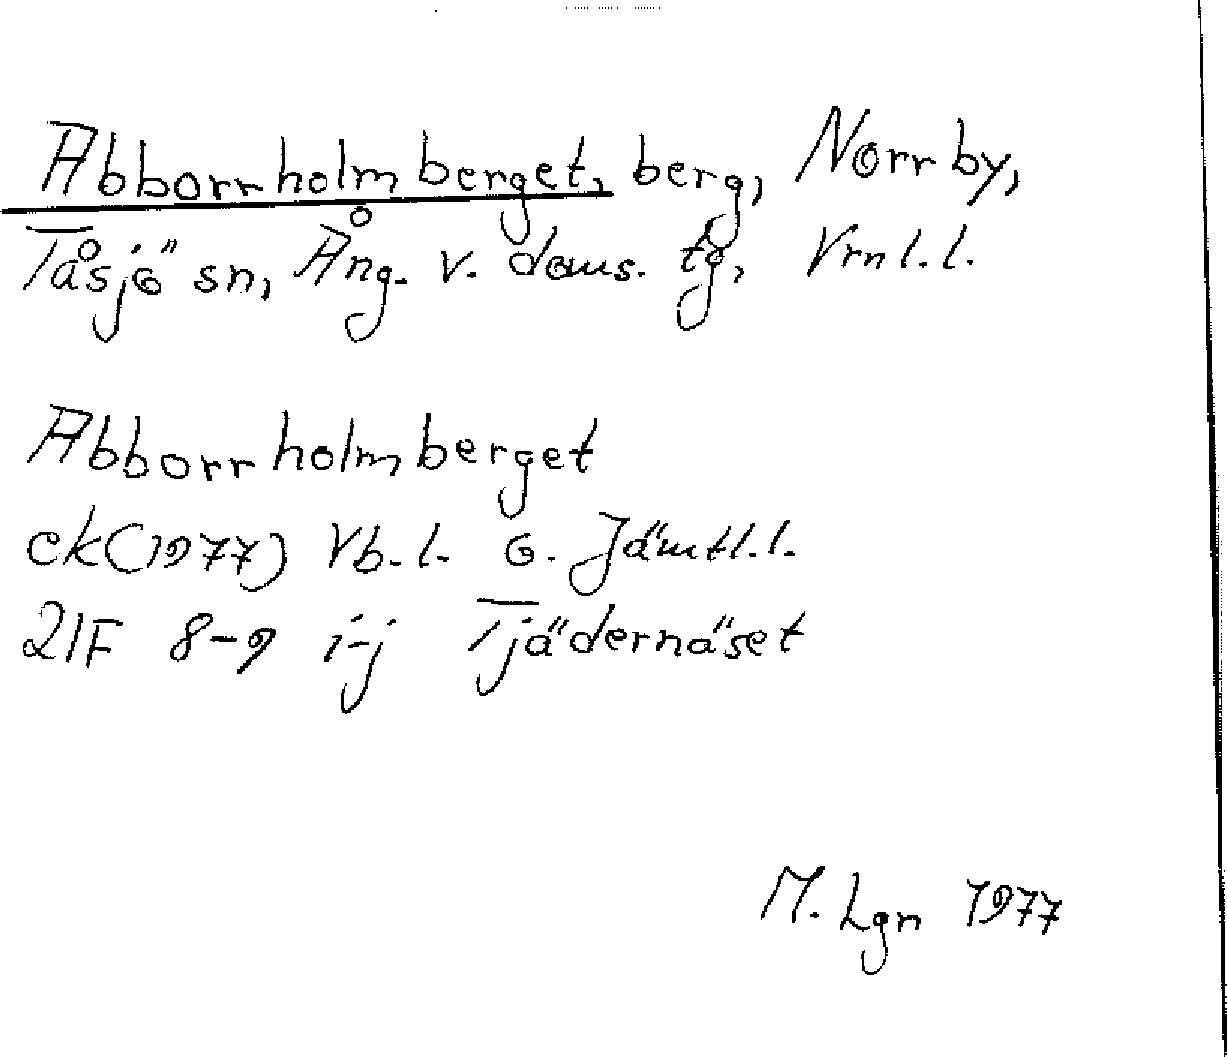 Abborrholmberget, berg, Norrby,
Tåsjö sn, Ång. v. doms. tg, Vrnl.l.
Abborrholmberget
ek(1977) Vb.l. o. Jämtl.l.
21F 8-9 i-j Tjädernäset
M. Lgn 1977